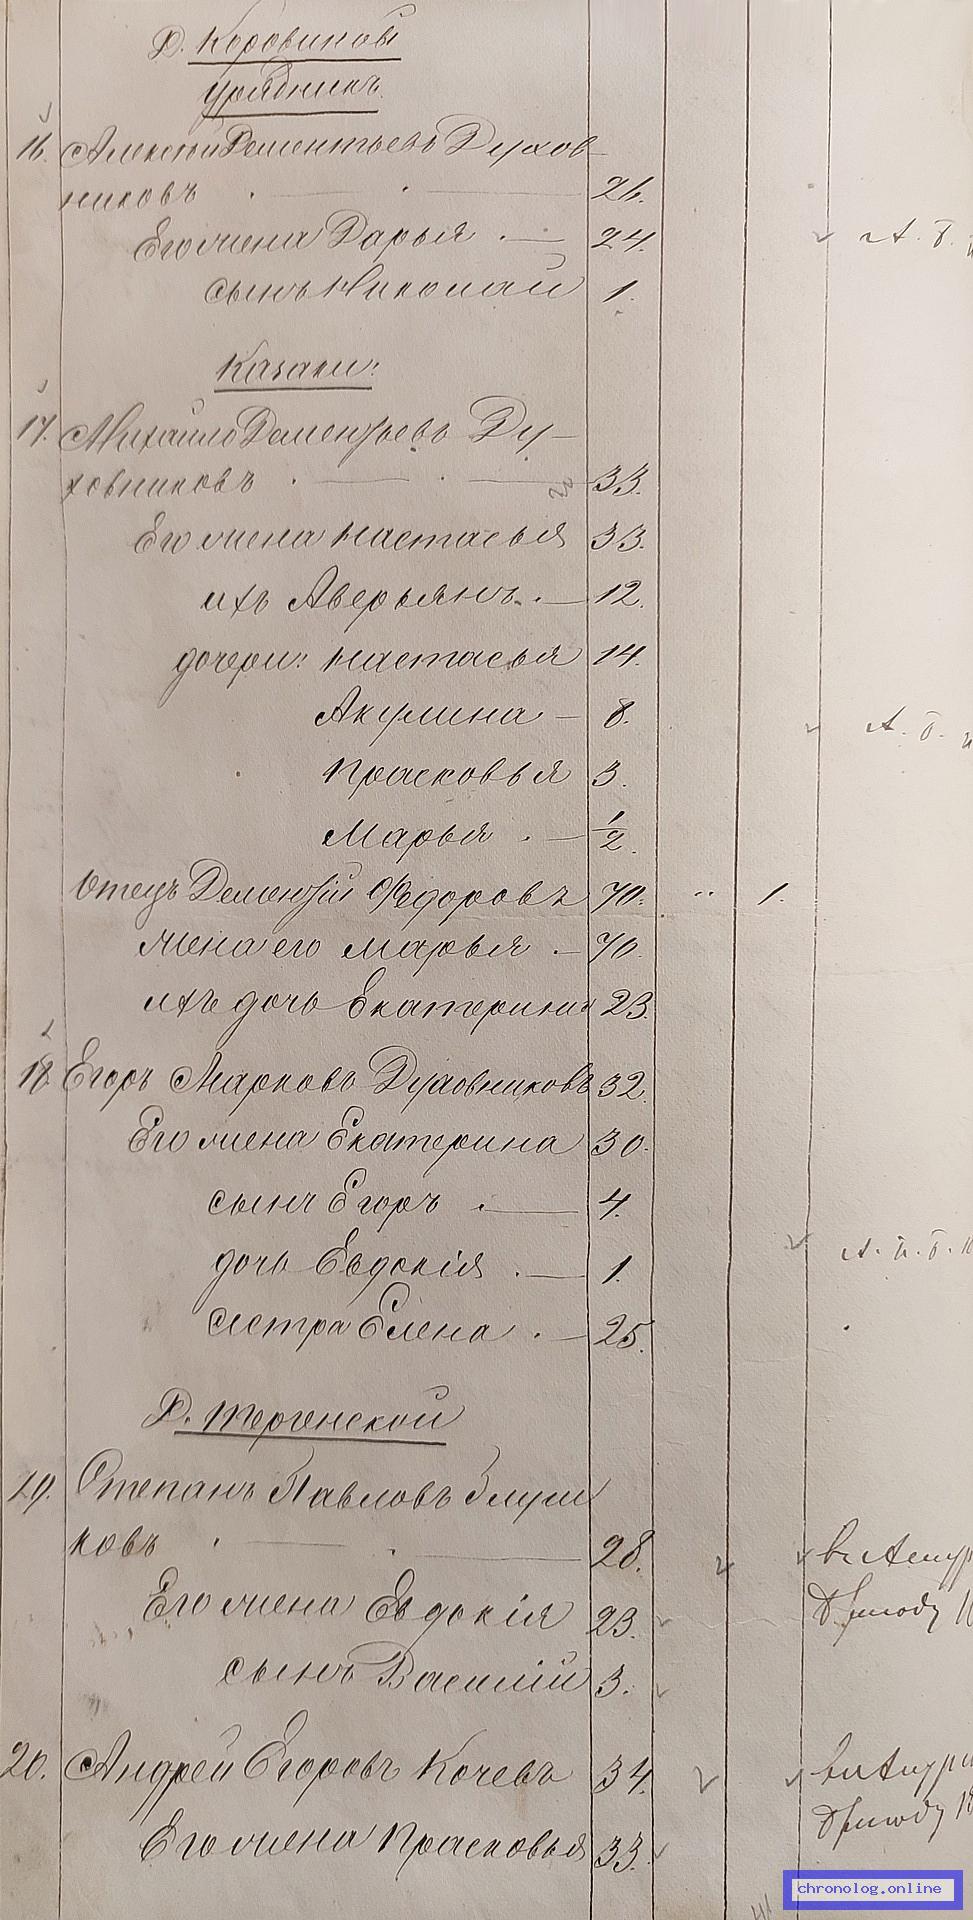 Д. Коровиной
Урядникъ
16. Алексей Дементьевъ Духов-
никовъ 26.
Его жена Дарья 24. А. Б.
сынъ Николай 1.
Казаки:
17. Михайло Дементьевъ Ду-
ховниковъ 33.
Его жена Настасья 33.
ихъ Аверьянъ 12.
дочери: Настасья 14.
Акулина 8. А. Б.
Прасковья 3.
Марья 1/2.
Отецъ Дементій Федоровъ 70. " 1.
жена его Марья 70.
ихъ дочь Екатерина 23.
18. Егоръ Марковъ Духовниковъ 32.
Его жена Екатерина 30.
сынъ Егоръ 4.
дочь Евдокія 1. А. п. Б.
сестра Елена 25.
Д. Тергенской
19. Степанъ Павловъ Глуш
ковъ 28. на Амур
Его жена Евдокія 23.
сынъ Василій 3.
20. Андрей Егоровъ Кочевъ 34. на Амур
Его жена Прасковья 33.
41
chronolog.online